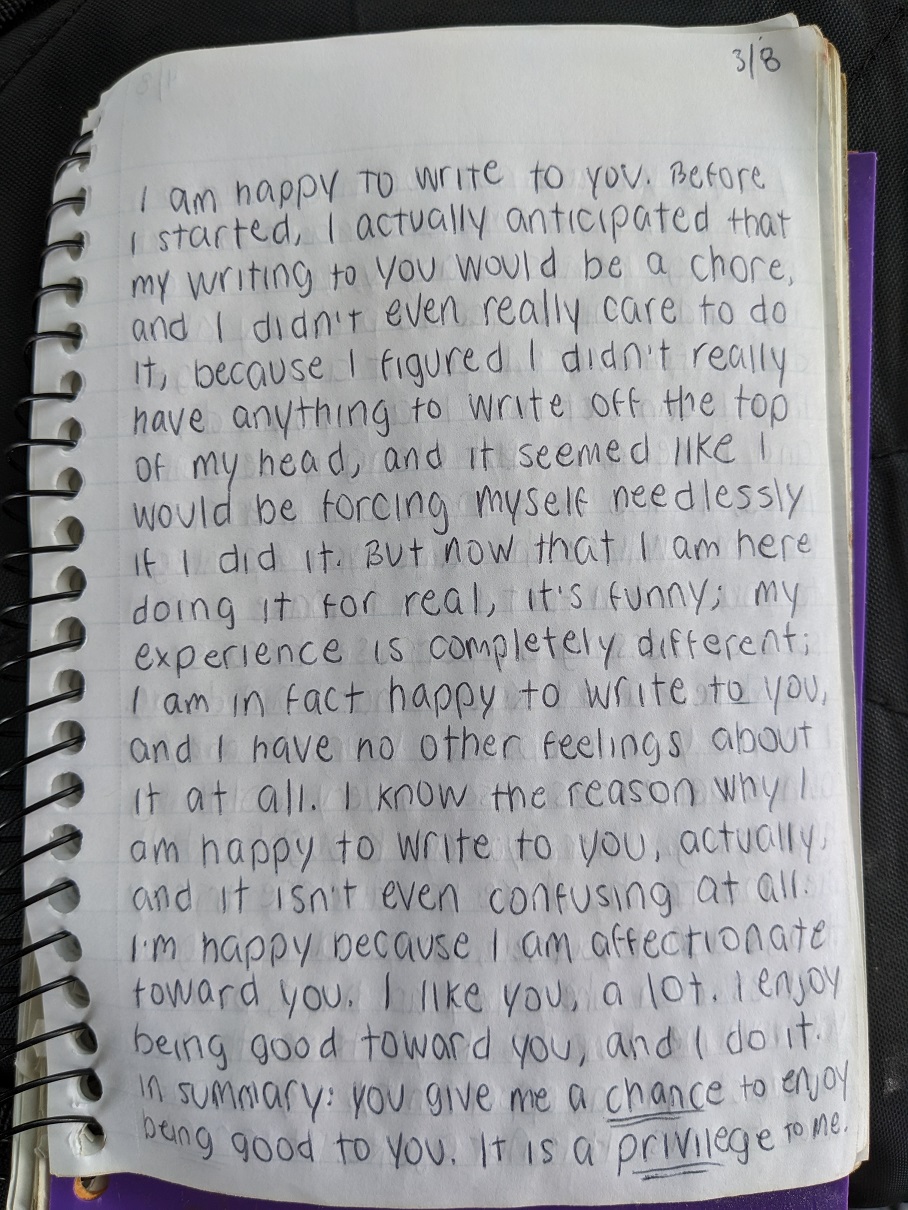 3/8
I am happy to write to you. Before
I started, I actually anticipated that
my writing to you would be a chore,
and I didn't even really care to do
it, because I figured I didn't really
have anything to write off the top
of my head, and it seemed like I
would be forcing myself needlessly
if I did it. But now that I am here
doing it for real, it's funny; my
experience is completely different;
I am in fact happy to write to you,
and I have no other feelings about
it at all. I know the reason why I
am happy to write to you, actually,
and it isn't even confusing at all.
I'm happy because I am affectionate
toward you. I like you, a lot. I enjoy
being good toward you, and I do it.
In summary: you give me a chance to enjoy
being good to you. It is a privilege to me.